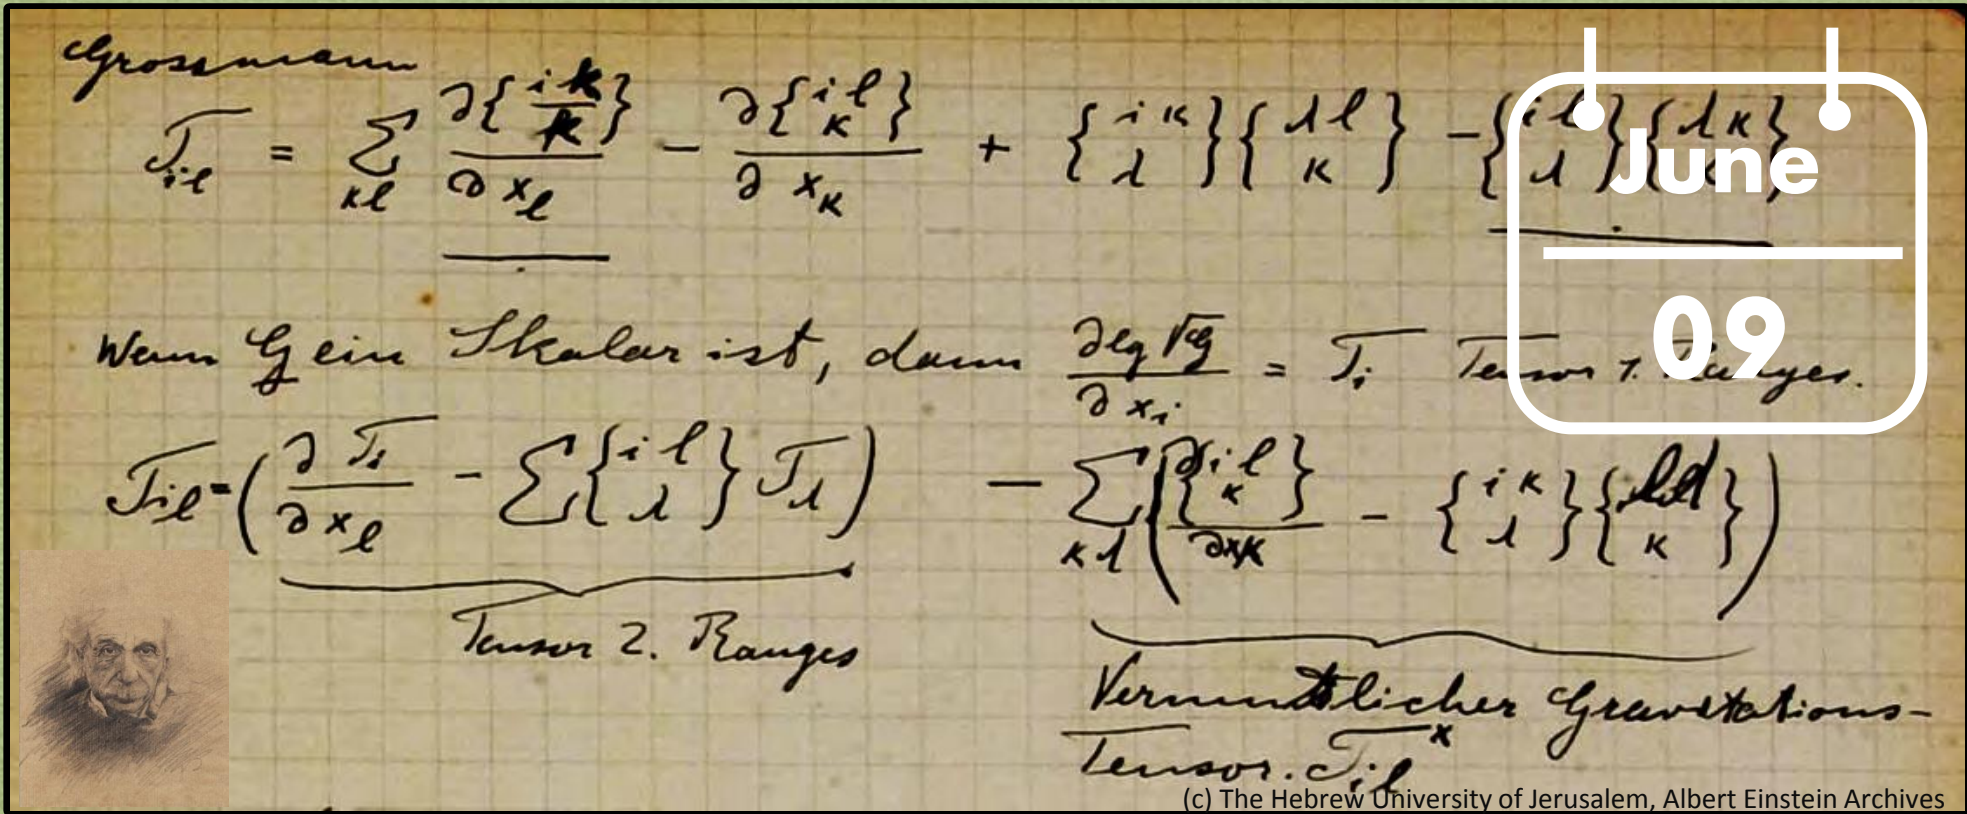 Grossmann
T_il = ∑_κl ∂{i k / k}/∂x_l − ∂{i l / κ}/∂x_κ + {i κ / λ}{λ l / κ} − {i l / λ}{λ κ / κ}
June
09
Wenn G ein Skalar ist, dann ∂lg√g/∂x_i = T_i Tensor 1. Ranges.
T_il = (∂T_i/∂x_l − ∑{i l / λ} T_λ) − ∑_κλ (∂{i l / κ}/∂x_κ − {i κ / λ}{λ l / κ})
Tensor 2. Ranges
Vermutlicher Gravitations-
Tensor. T_il^x
(c) The Hebrew University of Jerusalem, Albert Einstein Archives